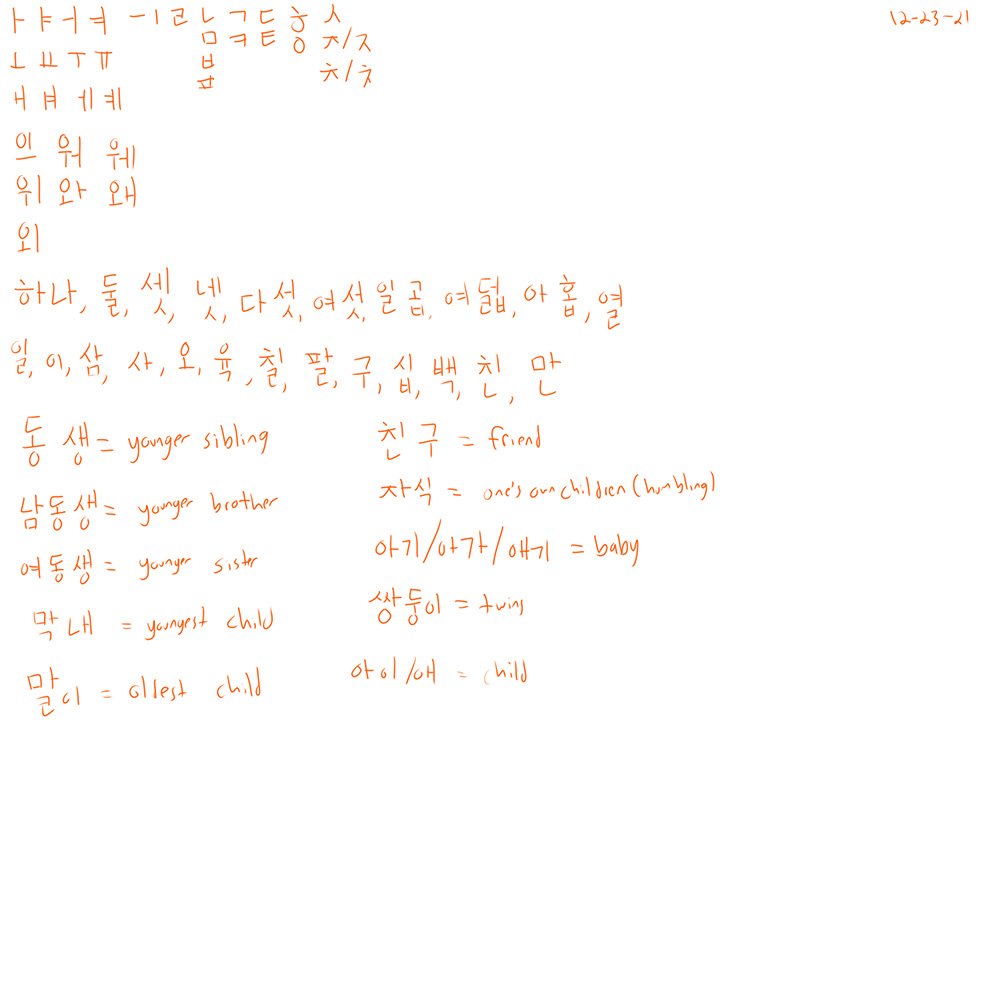 ㅏ ㅑ ㅓ ㅕ ㅡ ㅣ ㄹ ㄴ ㄱ ㄷ ㅎ ㅅ 12-23-21
ㅁ ㅋ ㅌ ㅇ ㅈ/ㅈ
ㅗ ㅛ ㅜ ㅠ ㅂ ㅊ/ㅊ
ㅍ
ㅐ ㅒ ㅔ ㅖ
의 워 웨
위 와 왜
외
하나, 둘, 셋, 넷, 다섯, 여섯, 일곱, 여덟, 아홉, 열
일, 이, 삼, 사, 오, 육, 칠, 팔, 구, 십, 백, 친, 만
동생 = younger sibling
친구 = friend
남동생 = younger brother
자식 = one's own children (humbling)
여동생 = younger sister
아기/아가/애기 = baby
막내 = youngest child
쌍둥이 = twins
말이 = oldest child
아이/애 = child